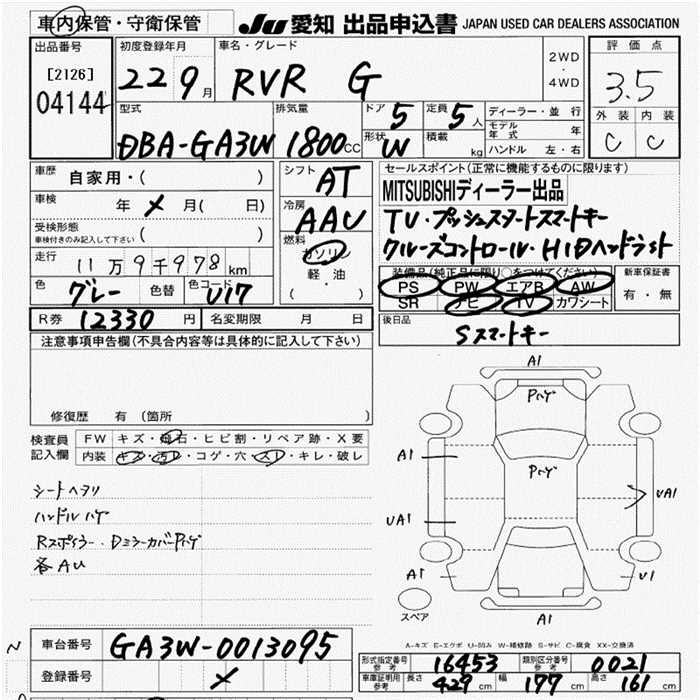 車内保管・守衛保管
JU 愛知 出品申込書 JAPAN USED CAR DEALERS ASSOCIATION
出品番号
[2126]
04144
初度登録年月
22 9月
車名・グレード
RVR G
2WD
・
4WD
評価点
3.5
外装 内装
C C
型式
DBA-GA3W
排気量
1800cc
ドア 5
定員 5人
形状 W
積載 kg
ディーラー・並行
モデル年式 年
ハンドル 左・右
車歴
自家用・( )
車検
年 × 月( 日)
受検形態
車検付きのみ記入して下さい ( )
走行
11万9千978km
色
グレー
色替
色コード
U17
シフト
AT
冷房
AAC
燃料
ガソリン
軽・油
( )
セールスポイント(正常に機能するものに限ります)
MITSUBISHIディーラー出品
TV・プッシュスタートスマートキー
クルーズコントロール・HIDヘッドライト
装備品(純正品に限り○をつけてください)
PS PW エアB AW
SR ナビ TV カワシート
新車保証書
有・無
後日品
Sスマートキー
R券 12330円
名変期限 月 日
注意事項申告欄(不具合内容等は具体的に記入して下さい)
修復歴 有 (箇所 )
検査員
記入欄
FW キズ・飛石・ヒビ割・リペア跡・X要
内装 キズ・汚レ・コゲ・穴・スレ・キレ・破レ
シートヘタリ
ハンドルハゲ
Rスポイラー、DミラーカバーPハゲ
各AU
A1
Pハゲ
A1
Pハゲ
UA1
UA1
A1
U1
スペア
A1
A-キズ E-エクボ U-凹み W-補修跡 S-サビ C-腐食 XX-交換済
車台番号
GA3W-0013095
登録番号
×
形式指定番号 参考 16453
類別区分番号 参考 0021
車庫証明用 参考 長さ 429cm 幅 177cm 高さ 161cm